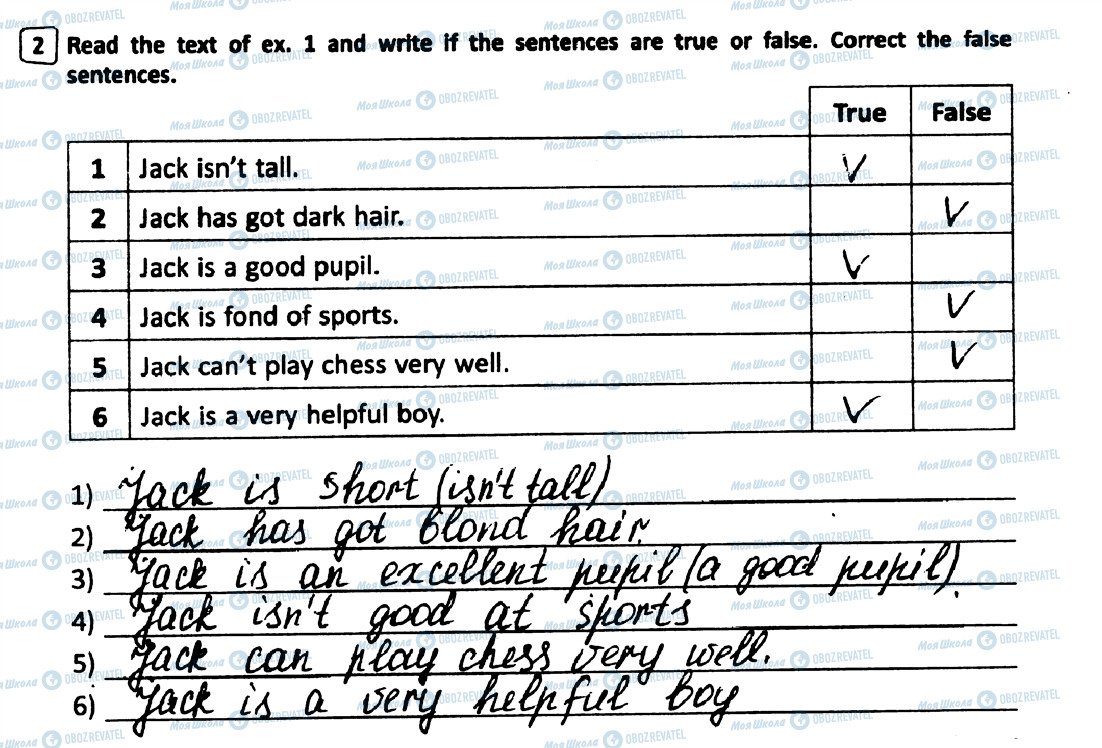 2 Read the text of ex. 1 and write if the sentences are true or false. Correct the false
sentences.
True False
1 Jack isn't tall. V
2 Jack has got dark hair. V
3 Jack is a good pupil. V
4 Jack is fond of sports. V
5 Jack can't play chess very well. V
6 Jack is a very helpful boy. V
1) Jack is short (isn't tall)
2) Jack has got blond hair.
3) Jack is an excellent pupil (a good pupil).
4) Jack isn't good at sports
5) Jack can play chess very well.
6) Jack is a very helpful boy
Моя Школа OBOZREVATEL